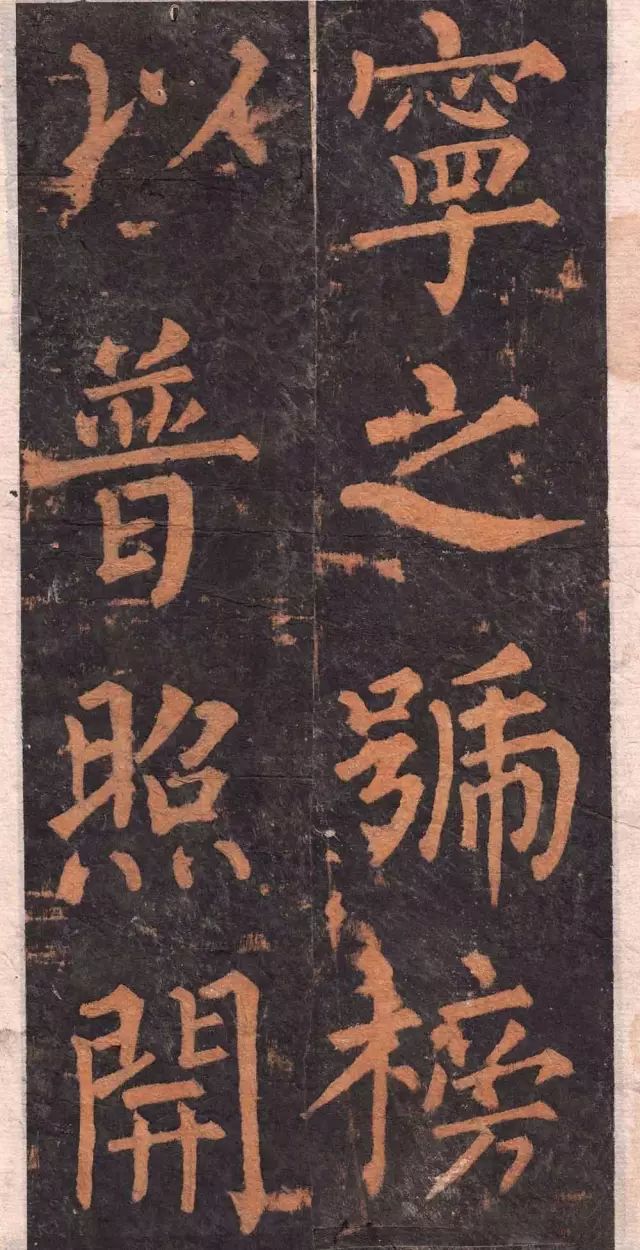 寧之號榜
以普照開